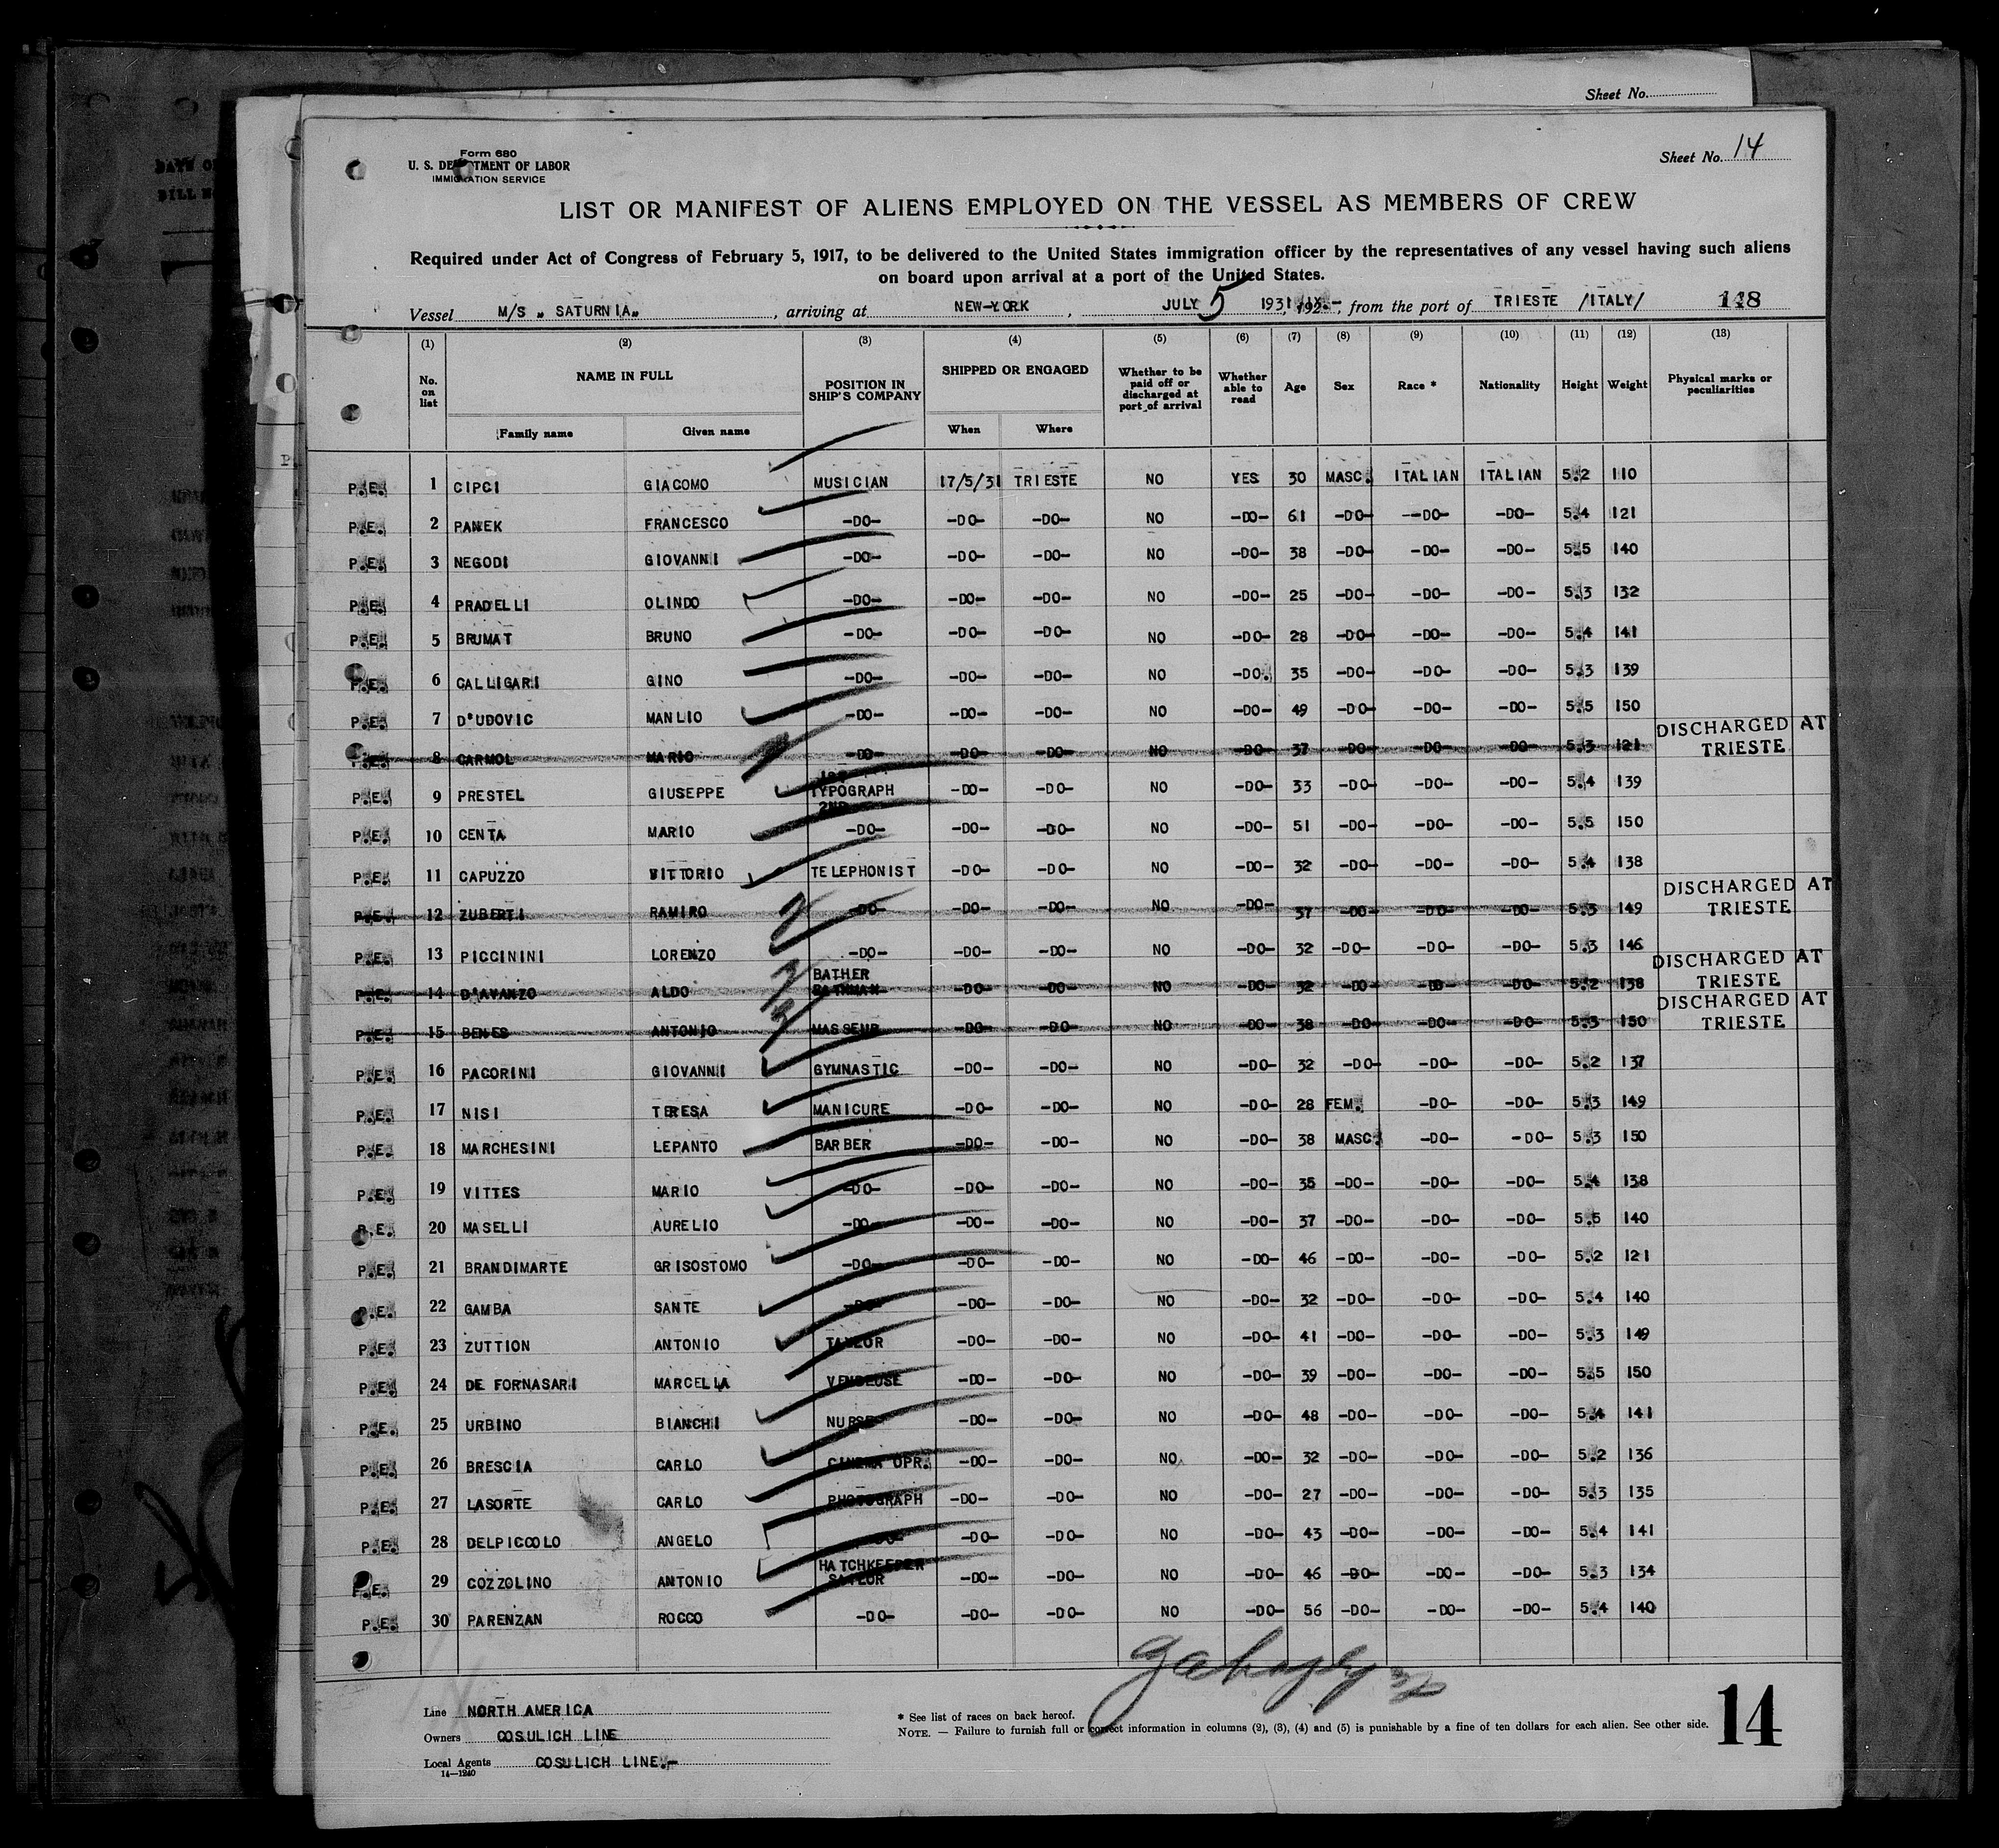 Sheet No.
Form 680
U. S. DEPARTMENT OF LABOR
IMMIGRATION SERVICE
Sheet No. 14
LIST OR MANIFEST OF ALIENS EMPLOYED ON THE VESSEL AS MEMBERS OF CREW
Required under Act of Congress of February 5, 1917, to be delivered to the United States immigration officer by the representatives of any vessel having such aliens
on board upon arrival at a port of the United States.
Vessel M/S „ SATURNIA„ , arriving at NEW-YORK , JULY 5 1931 , from the port of TRIESTE /ITALY/ 148
(1) (2) (3) (4) (5) (6) (7) (8) (9) (10) (11) (12) (13)
No. on list NAME IN FULL POSITION IN SHIP'S COMPANY SHIPPED OR ENGAGED Whether to be paid off or discharged at port of arrival Whether able to read Age Sex Race * Nationality Height Weight Physical marks or peculiarities
Family name Given name When Where
P.E. 1 CIPCI GIACOMO MUSICIAN 17/5/31 TRIESTE NO YES 30 MASC. ITALIAN ITALIAN 5.2 110
P.E. 2 PANEK FRANCESCO -DO- -DO- -DO- NO -DO- 61 -DO- -DO- -DO- 5.4 121
P.E. 3 NEGODI GIOVANNI -DO- -DO- -DO- NO -DO- 38 -DO- -DO- -DO- 5.5 140
P.E. 4 PRADELLI OLINDO -DO- -DO- -DO- NO -DO- 25 -DO- -DO- -DO- 5.3 132
P.E. 5 BRUMAT BRUNO -DO- -DO- -DO- NO -DO- 28 -DO- -DO- -DO- 5.4 141
P.E. 6 CALLIGARI GINO -DO- -DO- -DO- NO -DO. 35 -DO- -DO- -DO- 5.3 139
P.E. 7 D'UDOVIC MANLIO -DO- -DO- -DO- NO -DO- 49 -DO- -DO- -DO- 5.5 150
P.E. 8 CARMOL MARIO -DO- -DO- -DO- NO -DO- 37 -DO- -DO- -DO- 5.3 121 DISCHARGED AT TRIESTE
P.E. 9 PRESTEL GIUSEPPE 1ST TYPOGRAPH -DO- -DO- NO -DO- 33 -DO- -DO- -DO- 5.4 139
P.E. 10 CENTA MARIO 2ND -DO- -DO- -DO- NO -DO- 51 -DO- -DO- -DO- 5.5 150
P.E. 11 CAPUZZO VITTORIO TELEPHONIST -DO- -DO- NO -DO- 32 -DO- -DO- -DO- 5.4 138
P.E. 12 ZUBERTI RAMIRO -DO- -DO- -DO- NO -DO- 37 -DO- -DO- -DO- 5.3 149 DISCHARGED AT TRIESTE
P.E. 13 PICCININI LORENZO -DO- -DO- -DO- NO -DO- 32 -DO- -DO- -DO- 5.3 146
P.E. 14 D'AVANZO ALDO BATHER BATHMAN -DO- -DO- NO -DO- 32 -DO- -DO- -DO- 5.2 138 DISCHARGED AT TRIESTE
P.E. 15 BENES ANTONIO MASSEUR -DO- -DO- NO -DO- 38 -DO- -DO- -DO- 5.3 150 DISCHARGED AT TRIESTE
P.E. 16 PACORINI GIOVANNI GYMNASTIC -DO- -DO- NO -DO- 32 -DO- -DO- -DO- 5.2 137
P.E. 17 NISI TERESA MANICURE -DO- -DO- NO -DO- 28 FEM. -DO- -DO- 5.3 149
P.E. 18 MARCHESINI LEPANTO BARBER -DO- -DO- NO -DO- 38 MASC. -DO- -DO- 5.3 150
P.E. 19 VITTES MARIO -DO- -DO- -DO- NO -DO- 35 -DO- -DO- -DO- 5.4 138
P.E. 20 MASELLI AURELIO -DO- -DO- -DO- NO -DO- 37 -DO- -DO- -DO- 5.5 140
P.E. 21 BRANDIMARTE GRISOSTOMO -DO- -DO- -DO- NO -DO- 46 -DO- -DO- -DO- 5.2 121
P.E. 22 GAMBA SANTE -DO- -DO- -DO- NO -DO- 32 -DO- -DO- -DO- 5.4 140
P.E. 23 ZUTTION ANTONIO TAYLOR -DO- -DO- NO -DO- 41 -DO- -DO- -DO- 5.3 149
P.E. 24 DE FORNASARI MARCELLA VENDEUSE -DO- -DO- NO -DO- 39 -DO- -DO- -DO- 5.5 150
P.E. 25 URBINO BIANCHI NURSE -DO- -DO- NO -DO- 48 -DO- -DO- -DO- 5.4 141
P.E. 26 BRESCIA CARLO CINEMA OPR. -DO- -DO- NO -DO- 32 -DO- -DO- -DO- 5.2 136
P.E. 27 LASORTE CARLO PHOTOGRAPH -DO- -DO- NO -DO- 27 -DO- -DO- -DO- 5.3 135
P.E. 28 DELPICCOLO ANGELO -DO- -DO- -DO- NO -DO- 43 -DO- -DO- -DO- 5.4 141
P.E. 29 COZZOLINO ANTONIO HATCHKEEPER SAYLOR -DO- -DO- NO -DO- 46 -DO- -DO- -DO- 5.3 134
P.E. 30 PARENZAN ROCCO -DO- -DO- -DO- NO -DO- 56 -DO- -DO- -DO- 5.4 140
Line NORTH AMERICA
Owners COSULICH LINE
Local Agents COSULICH LINE.-
14—1240
* See list of races on back hereof.
NOTE. — Failure to furnish full or correct information in columns (2), (3), (4) and (5) is punishable by a fine of ten dollars for each alien. See other side.
14